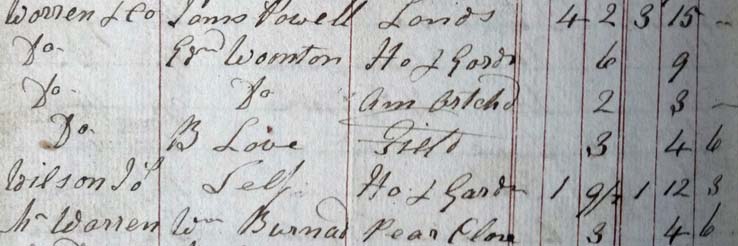 Warren & Co James Powell Lands 4 2 3 15 -
Do Edwd Woonton Ho & Gardn 6 9
Do Do Orchd 2 3 -
Do B Love Field 3 4 6
Wilson Jos Self Ho & Gardn 1 9/2 1 12 3
Warren Wm Burnad Pear Close 3 4 6